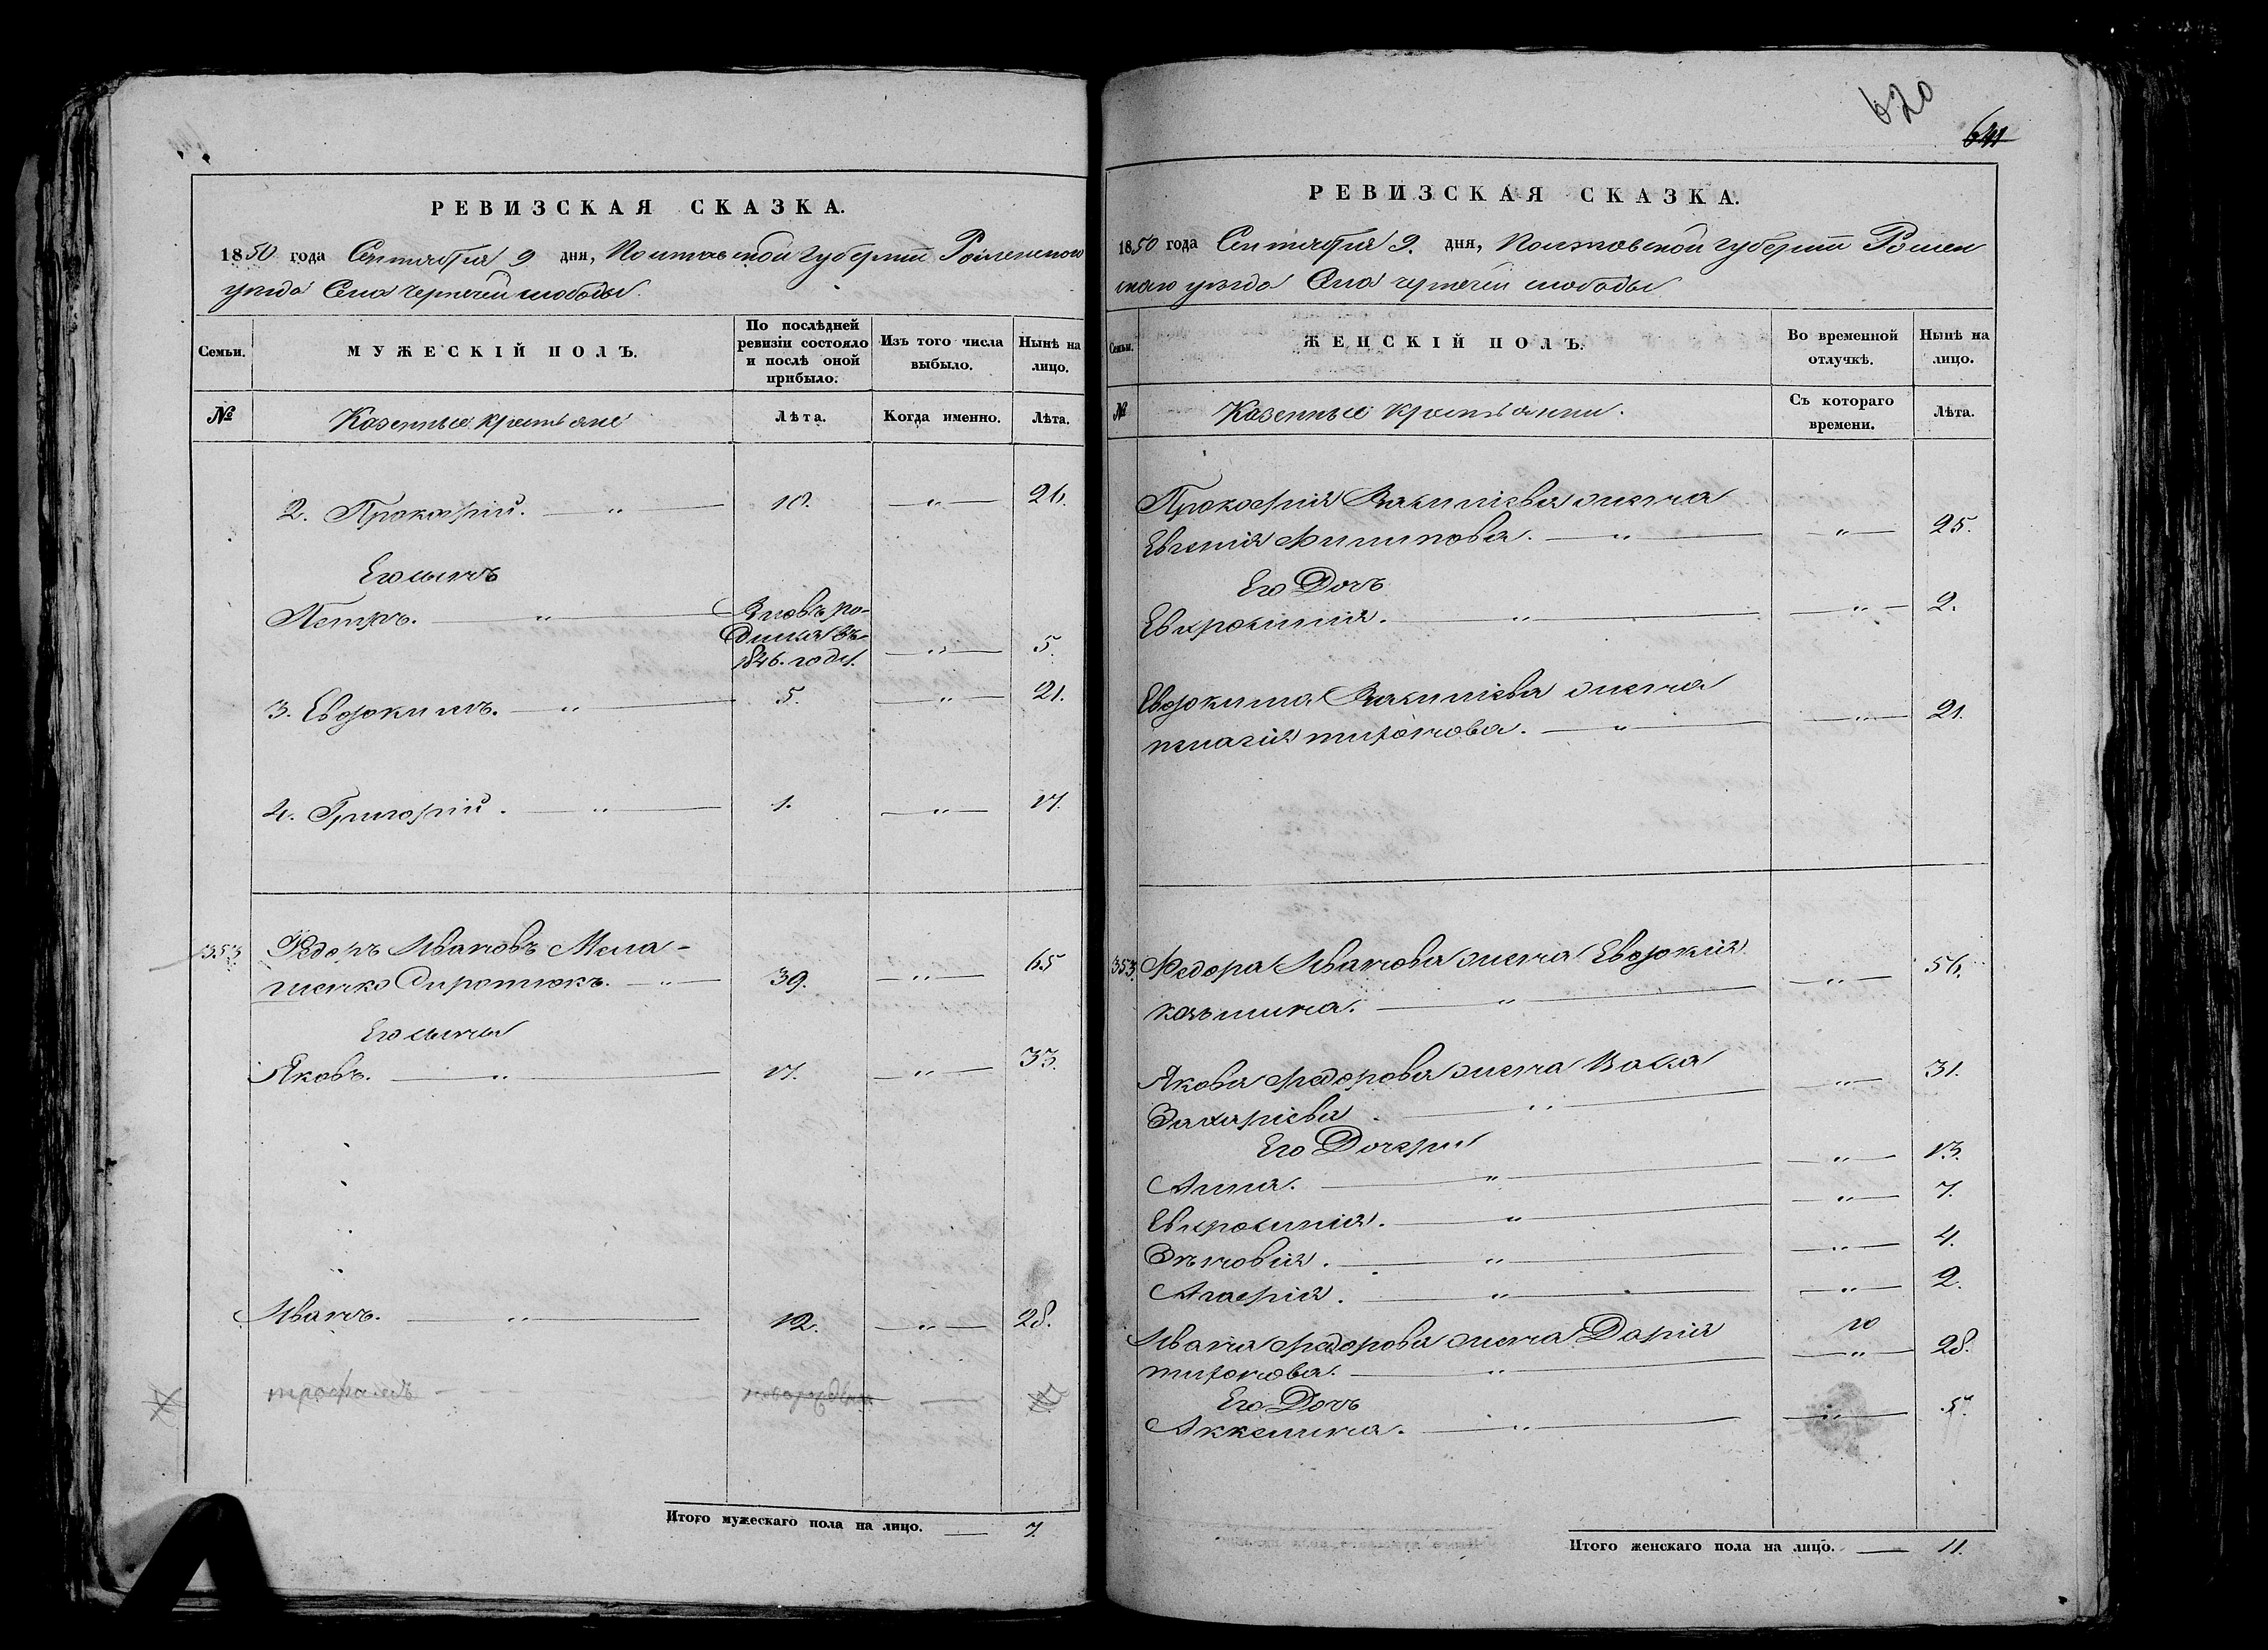 РЕВИЗСКАЯ СКАЗКА.
1850 года Сентября 9 дня, Полтавской губерніи Роменского
уѣзда Села чернечей слободы.
Семьи.
МУЖЕСКІЙ ПОЛЪ.
По послѣдней
ревизіи состояло
и послѣ оной
прибыло.
Изъ того числа
выбыло.
Нынѣ на
лицо.
№
Казенные крестьяне
Лѣта.
Когда именно.
Лѣта.
2. Прокофій. — „ — 10. — „ — 26.
Его сынъ
Петръ. — „ — Вновь ро-
дился въ
1846. году. — „ — 5.
3. Евдокимъ. — „ — 5. — „ — 21.
4. Григорій. — „ — 1. — „ — 17.
353. Федоръ Ивановъ Мела-
шенко Сиротюкъ. — „ — 39. — „ — 65
Его сыны
Яковъ. — „ — 17. — „ — 33.
Иванъ. — „ — 12. — „ — 28.
трофимъ — —
Итого мужескаго пола на лицо. — 7.
620
641
РЕВИЗСКАЯ СКАЗКА.
1850 года Сентября 9. дня, Полтавской губерніи Ромен
скаго уѣзда Села чернечей слободы
Семьи.
ЖЕНСКІЙ ПОЛЪ.
Во временной
отлучкѣ.
Нынѣ на
лицо.
№
Казенные крестьянки.
Съ котораго
времени.
Лѣта.
Прокофія Василіева жена
Евгенія Филипова. — „ — — „ — 25.
Его Дочь
Евфросинія. — „ — — „ — 2.
Евдокима Василіева жена
пелагія тихонова. — „ — — „ — 21.
353. Федора Иванова жена Евдокія
козьмина. — „ — — „ — 56.
Якова федорова жена Васса
Захаріева — „ — — „ — 31.
Его Дочери
Анна. — „ — — „ — 13.
Евфросинія. — „ — — „ — 7.
Зѣновія. — „ — — „ — 4.
Агафія. — „ — — „ — 2.
Ивана федорова жена Дарія
тихонова. — „ — — „ — 28.
Его Дочь
Аккелина. — „ — — „ — 5.
Итого женскаго пола на лицо. — 11.